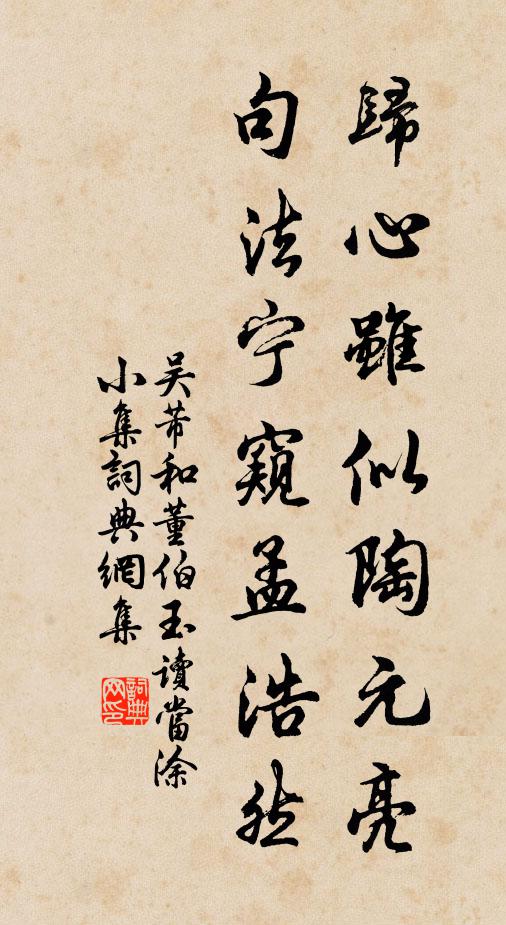 歸心雖似陶元亮
句法宁窺孟浩然
吴芾和董伯玉讀當涂
小集詞典網集
詞典網印